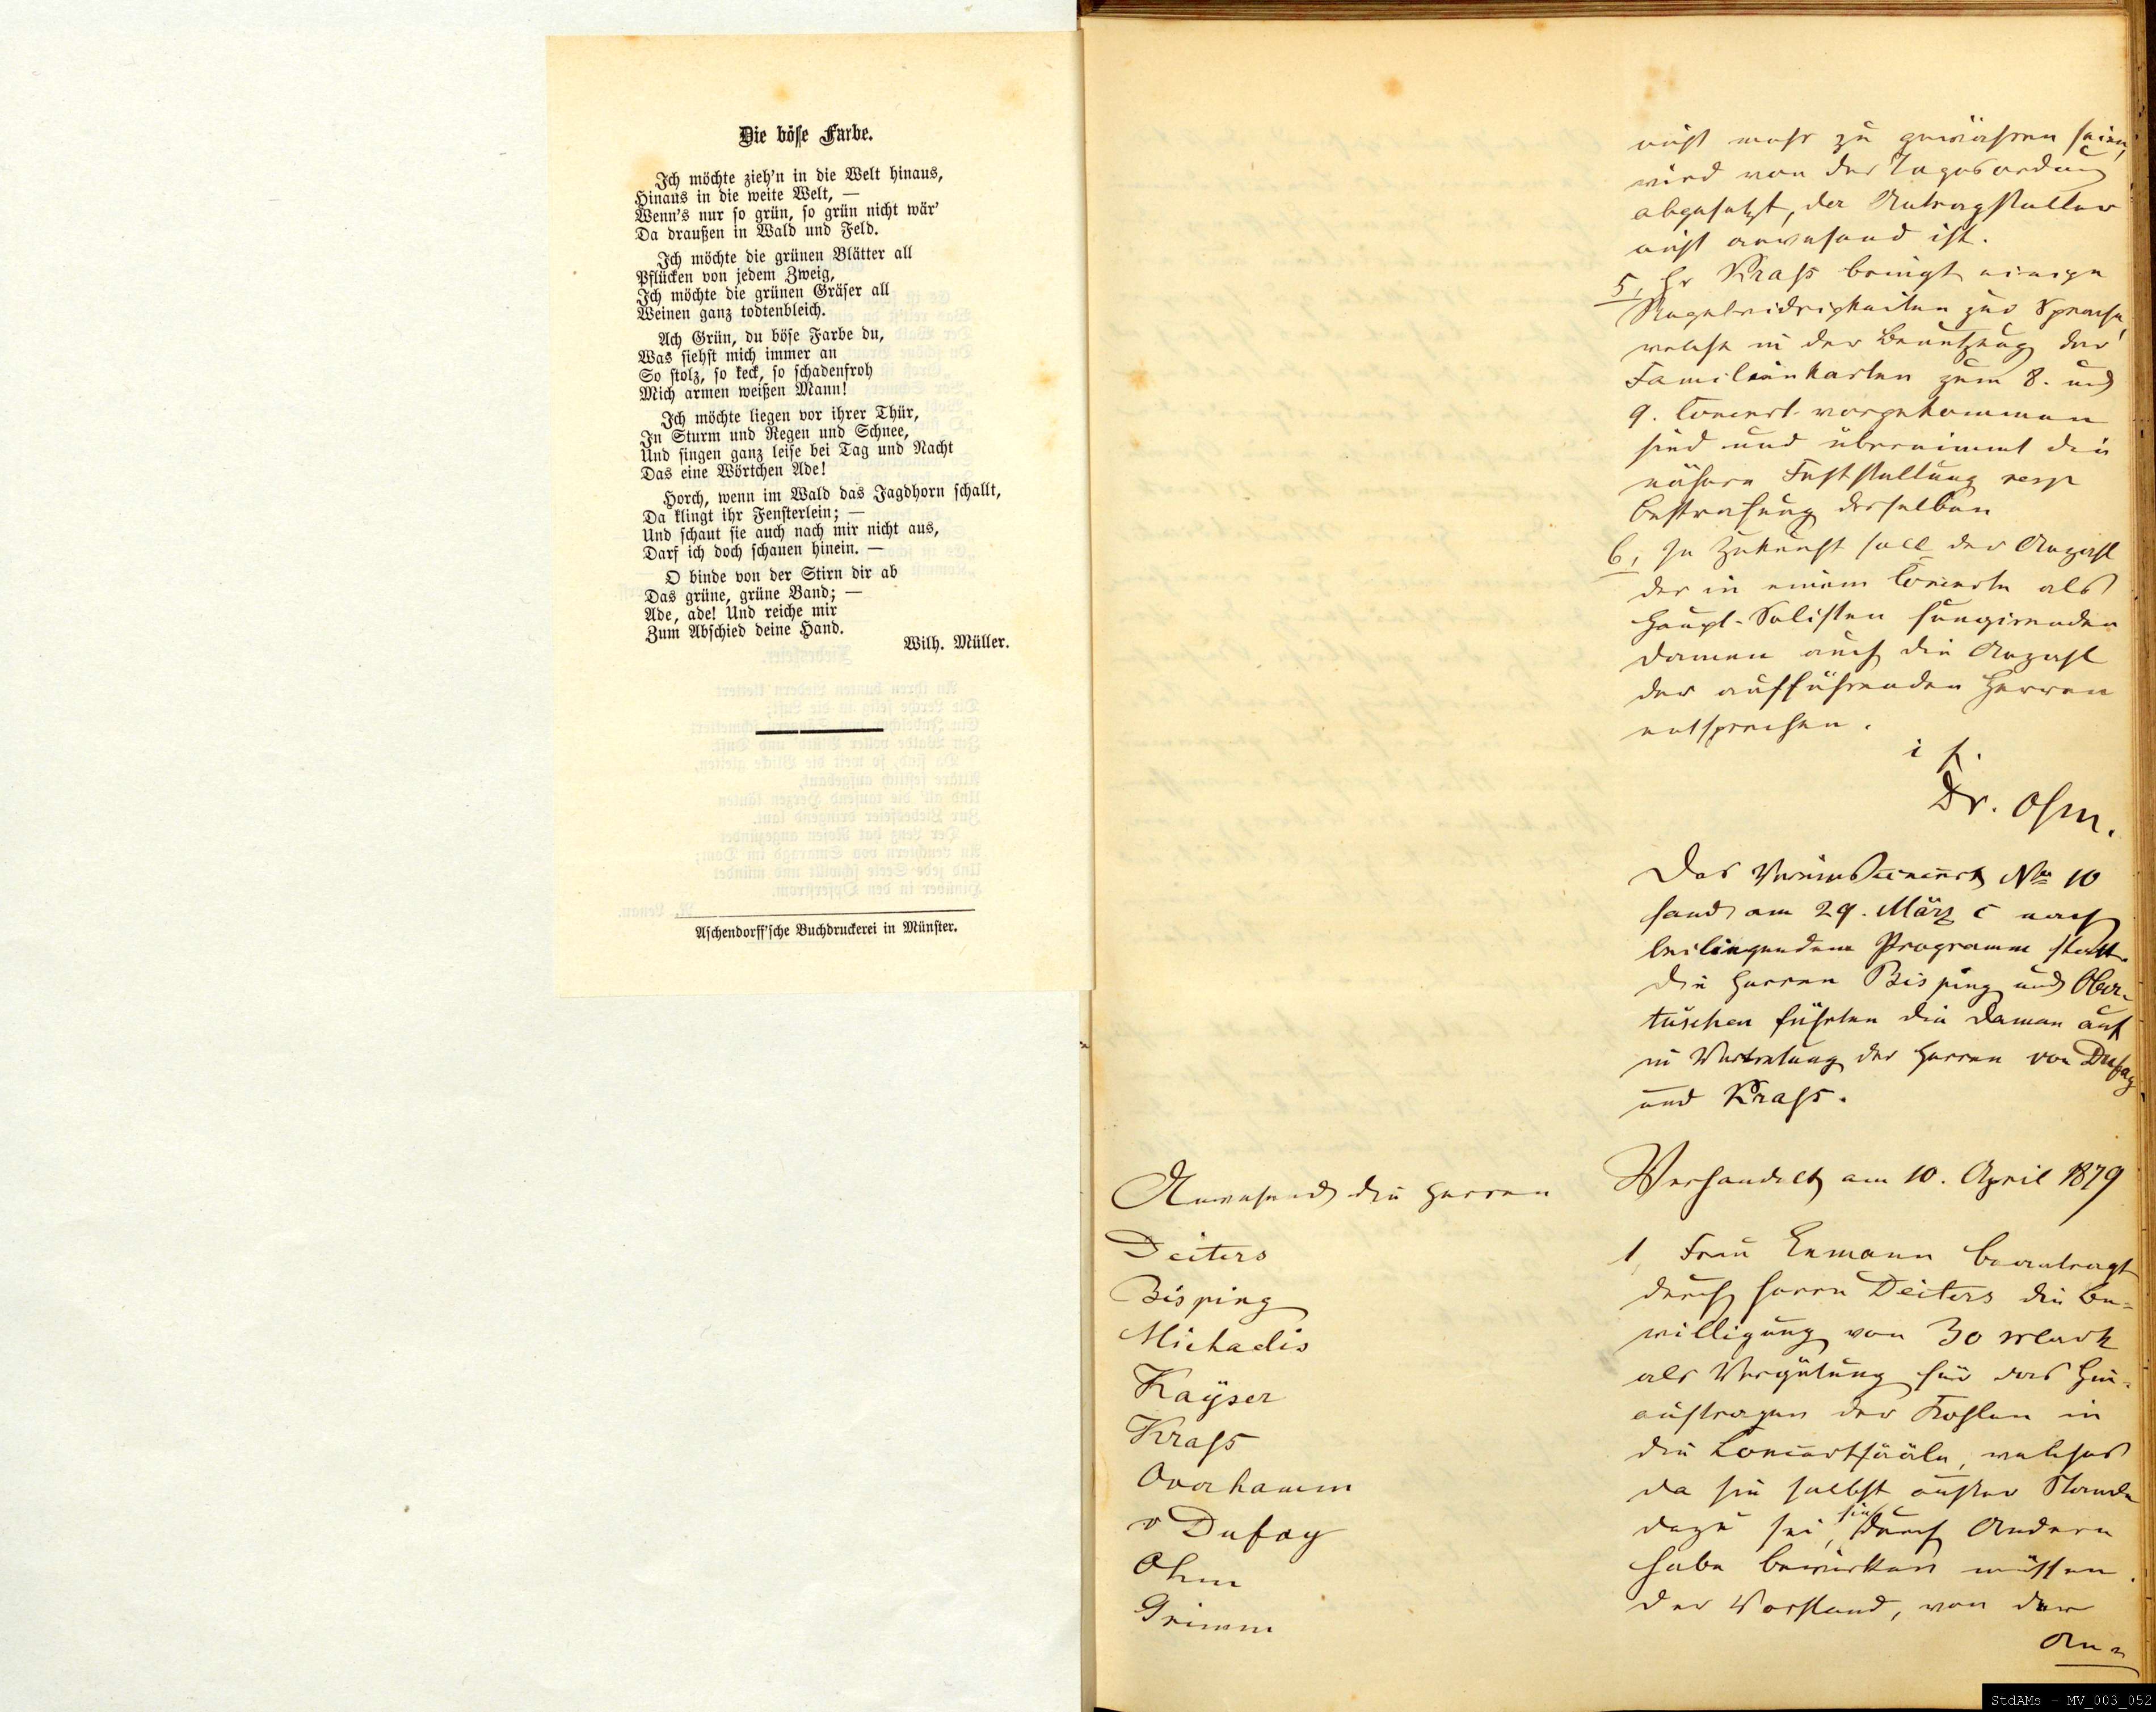 Die böse Farbe.
Ich möchte zieh'n in die Welt hinaus,
Hinaus in die weite Welt, —
Wenn's nur so grün, so grün nicht wär'
Da draußen in Wald und Feld.
Ich möchte die grünen Blätter all
Pflücken von jedem Zweig,
Ich möchte die grünen Gräser all
Weinen ganz todtenbleich.
Ach Grün, du böse Farbe du,
Was siehst mich immer an
So stolz, so keck, so schadenfroh
Mich armen weißen Mann!
Ich möchte liegen vor ihrer Thür,
In Sturm und Regen und Schnee,
Und singen ganz leise bei Tag und Nacht
Das eine Wörtchen Ade!
Horch, wenn im Wald das Jagdhorn schallt,
Da klingt ihr Fensterlein; —
Und schaut sie auch nach mir nicht aus,
Darf ich doch schauen hinein. —
O binde von der Stirn dir ab
Das grüne, grüne Band; —
Ade, ade! Und reiche mir
Zum Abschied deine Hand.
Wilh. Müller.
Aschendorff'sche Buchdruckerei in Münster.
nicht mehr zu gewähren seien,
wird von der Tagesordnung
abgesetzt, da Antragsteller
nicht anwesend ist.
5, Hr Krass bringt einige
Regelwidrigkeiten zur Sprache,
welche in der Benutzung der
Familienkarten zum 8. und
9. Concert vorgekommen
sind und übernimmt die
nähere Feststellung resp
Bestrafung derselben
6, In Zukunft soll der Anzahl
der in einem Concerte als
Haupt-Solisten fungirenden
Damen auch die Anzahl
der aufführenden Herren
entsprechen.
Dr. Ohm.
Das Vereinsconcert No 10
fand am 29. März c nach
beiliegendem Programm statt.
Die Herren Bisping und Ober-
tüschen führten die Damen auf
in Vertretung der Herren von Dufay
und Krass.
Anwesend die Herren
Deiters
Bisping
Michaelis
Kaÿser
Krass
Overhamm
v Dufay
Ohm
Grimm
Verhandelt am 10. April 1879
1, Frau Enmann beantragt
durch Herrn Deiters die Be-
willigung von 30 Mark
als Vergütung für das Hin-
auftragen der Kohlen in
die Concertsääle, welches
da sie selbst außer Stande
dazu sei, sie durch Andere
habe bewirken müssen.
Der Vorstand, von der
An-
StdAMs - MV_003_052